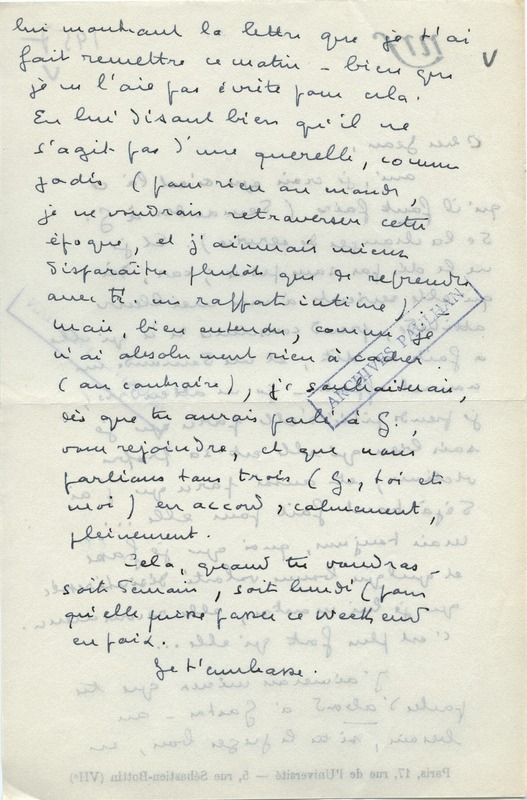 lui montrant la lettre que je t'ai
fait remettre ce matin – bien que
je ne l'aie pas écrite pour cela.
En lui disant bien qu'il ne
s'agit pas d'une querelle, comme
jadis (pour rien au monde,
je ne voudrais retraverser cette
époque, et j'aimerais mieux
disparaître plutôt que de reprendre
avec un rapport intime)
mais, bien entendu, comme je
n'ai absolument rien à cacher
(au contraire), je souhaiterais,
dès que tu aurais parlé à G.,
vous rejoindre, et que nous
parlions tous trois (G., toi et
moi) en accord, calmement,
pleinement.
Cela, quand tu voudras –
soit demain, soit lundi (pour
qu'elle puisse passer ce week end
en paix.
Je t'embrasse.
ARCHIVES PAULHAN
Paris, 17, rue de l'Université — 5, rue Sébastien-Bottin (VIIe)